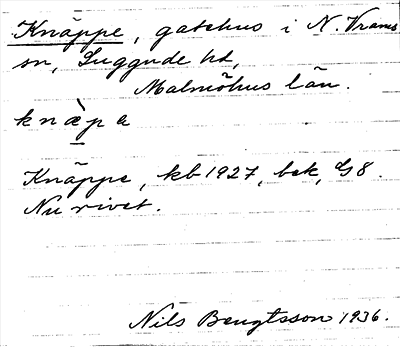 Knäppe, gatehus i N Vrams
sn, Luggude hd,
Malmöhus län.
knæ̀pa
Knäppe, kb 1927, bek, G8.
Nu rivet.
Nils Bengtsson 1936.